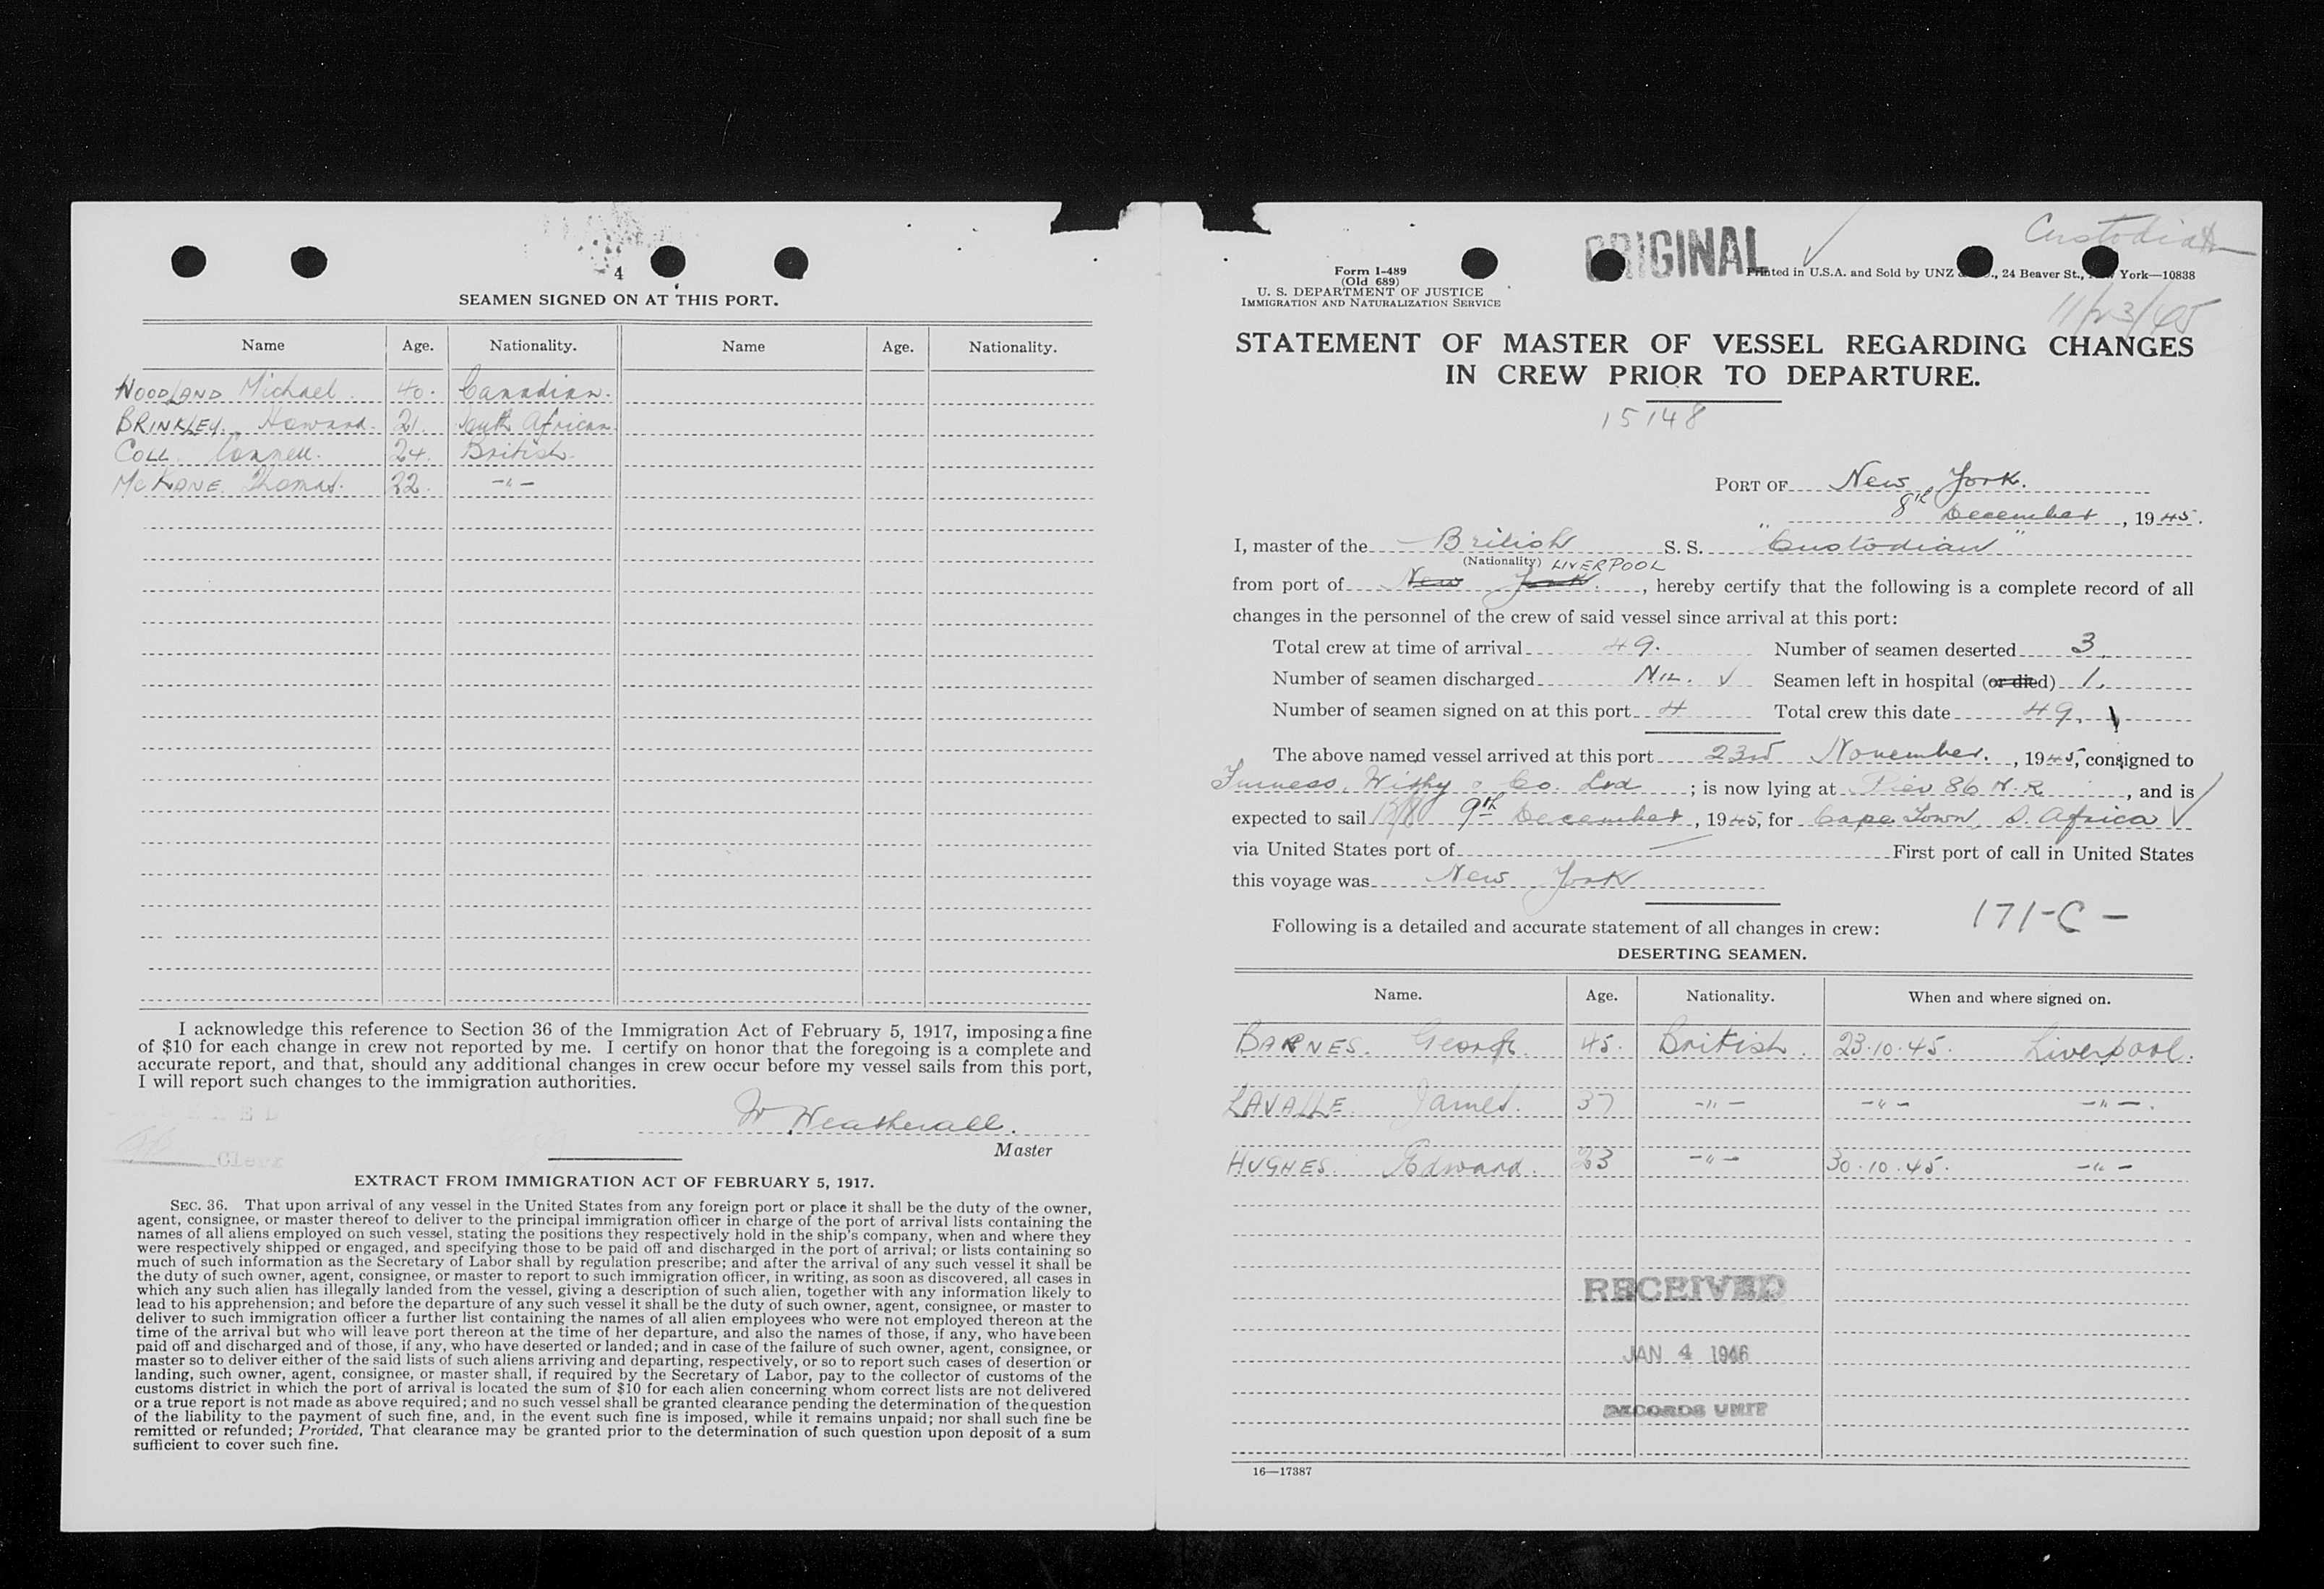 4
SEAMEN SIGNED ON AT THIS PORT.
Name Age. Nationality. Name Age. Nationality.
WOODLAND Michael. 40. Canadian.
BRINKLEY. Howard. 21. South African.
COLL. Connell. 24. British.
McKANE. Thomas. 22. -"-
I acknowledge this reference to Section 36 of the Immigration Act of February 5, 1917, imposing a fine
of $10 for each change in crew not reported by me. I certify on honor that the foregoing is a complete and
accurate report, and that, should any additional changes in crew occur before my vessel sails from this port,
I will report such changes to the immigration authorities.
W Weatherall.
Master
Clerk
EXTRACT FROM IMMIGRATION ACT OF FEBRUARY 5, 1917.
SEC. 36. That upon arrival of any vessel in the United States from any foreign port or place it shall be the duty of the owner,
agent, consignee, or master thereof to deliver to the principal immigration officer in charge of the port of arrival lists containing the
names of all aliens employed on such vessel, stating the positions they respectively hold in the ship's company, when and where they
were respectively shipped or engaged, and specifying those to be paid off and discharged in the port of arrival; or lists containing so
much of such information as the Secretary of Labor shall by regulation prescribe; and after the arrival of any such vessel it shall be
the duty of such owner, agent, consignee, or master to report to such immigration officer, in writing, as soon as discovered, all cases in
which any such alien has illegally landed from the vessel, giving a description of such alien, together with any information likely to
lead to his apprehension; and before the departure of any such vessel it shall be the duty of such owner, agent, consignee, or master to
deliver to such immigration officer a further list containing the names of all alien employees who were not employed thereon at the
time of the arrival but who will leave port thereon at the time of her departure, and also the names of those, if any, who have been
paid off and discharged and of those, if any, who have deserted or landed; and in case of the failure of such owner, agent, consignee, or
master so to deliver either of the said lists of such aliens arriving and departing, respectively, or so to report such cases of desertion or
landing, such owner, agent, consignee, or master shall, if required by the Secretary of Labor, pay to the collector of customs of the
customs district in which the port of arrival is located the sum of $10 for each alien concerning whom correct lists are not delivered
or a true report is not made as above required; and no such vessel shall be granted clearance pending the determination of the question
of the liability to the payment of such fine, and, in the event such fine is imposed, while it remains unpaid; nor shall such fine be
remitted or refunded; Provided, That clearance may be granted prior to the determination of such question upon deposit of a sum
sufficient to cover such fine.
Custodian
ORIGINAL
Form I-489
(Old 689)
U. S. DEPARTMENT OF JUSTICE
IMMIGRATION AND NATURALIZATION SERVICE
Printed in U.S.A. and Sold by UNZ , 24 Beaver St., York—10838
11/23/45
STATEMENT OF MASTER OF VESSEL REGARDING CHANGES
IN CREW PRIOR TO DEPARTURE.
15148
PORT OF New York.
8th December, 1945.
I, master of the British S. S. "Custodian"
(Nationality) LIVERPOOL
from port of New York, hereby certify that the following is a complete record of all
changes in the personnel of the crew of said vessel since arrival at this port:
Total crew at time of arrival 49. Number of seamen deserted 3.
Number of seamen discharged NIL. ✓ Seamen left in hospital (or died) 1.
Number of seamen signed on at this port 4 Total crew this date 49.
The above named vessel arrived at this port 23rd November, 1945, consigned to
Furness, Withy & Co. Ltd; is now lying at Pier 86 N.R, and is
expected to sail 9th December, 1945, for Cape Town, S. Africa ✓
via United States port of — First port of call in United States
this voyage was New York
171-C -
Following is a detailed and accurate statement of all changes in crew:
DESERTING SEAMEN.
Name. Age. Nationality. When and where signed on.
BARNES. George. 45. British. 23.10.45. Liverpool.
LAVALLE. James. 37 -"- -"- -"-.
HUGHES. Edward. 23 -"- 30.10.45. -"-
RECEIVED
JAN 4 1946
RECORDS UNIT
16—17387